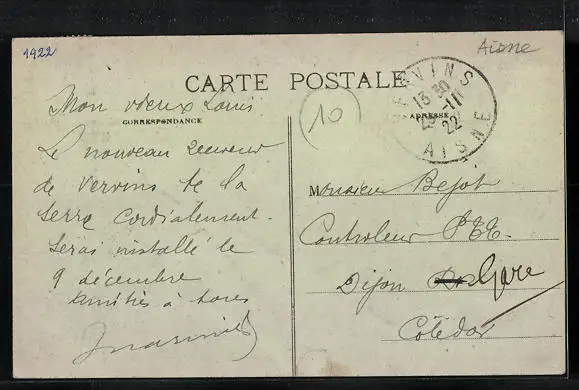 1922
Aisne
CARTE POSTALE
VERVINS
13 30
29 -11
22
AISNE
10
CORRESPONDANCE
ADRESSE
Mon vieux Louis
Le nouveau receveur
de Vervins te la
serre cordialement.
Serai installé le
9 décembre
amitiés à tous
Monsieur Bejot
Controleur PTT.
Dijon Gare
Côte d'or